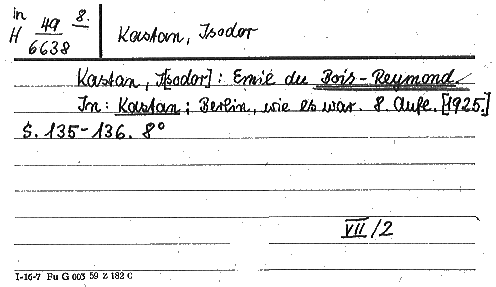 in
H 49 8.
6638
Kastan, Isodor
Kastan, I[sodor]: Emil du Bois-Reymond.
In: Kastan: Berlin, wie es war. 8. Aufl. [1925.]
S. 135-136. 8°
VII/2
I-16-7 Fu G 003 59 Z 182 C